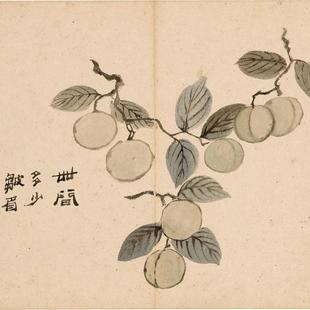 世間
多少
皺眉